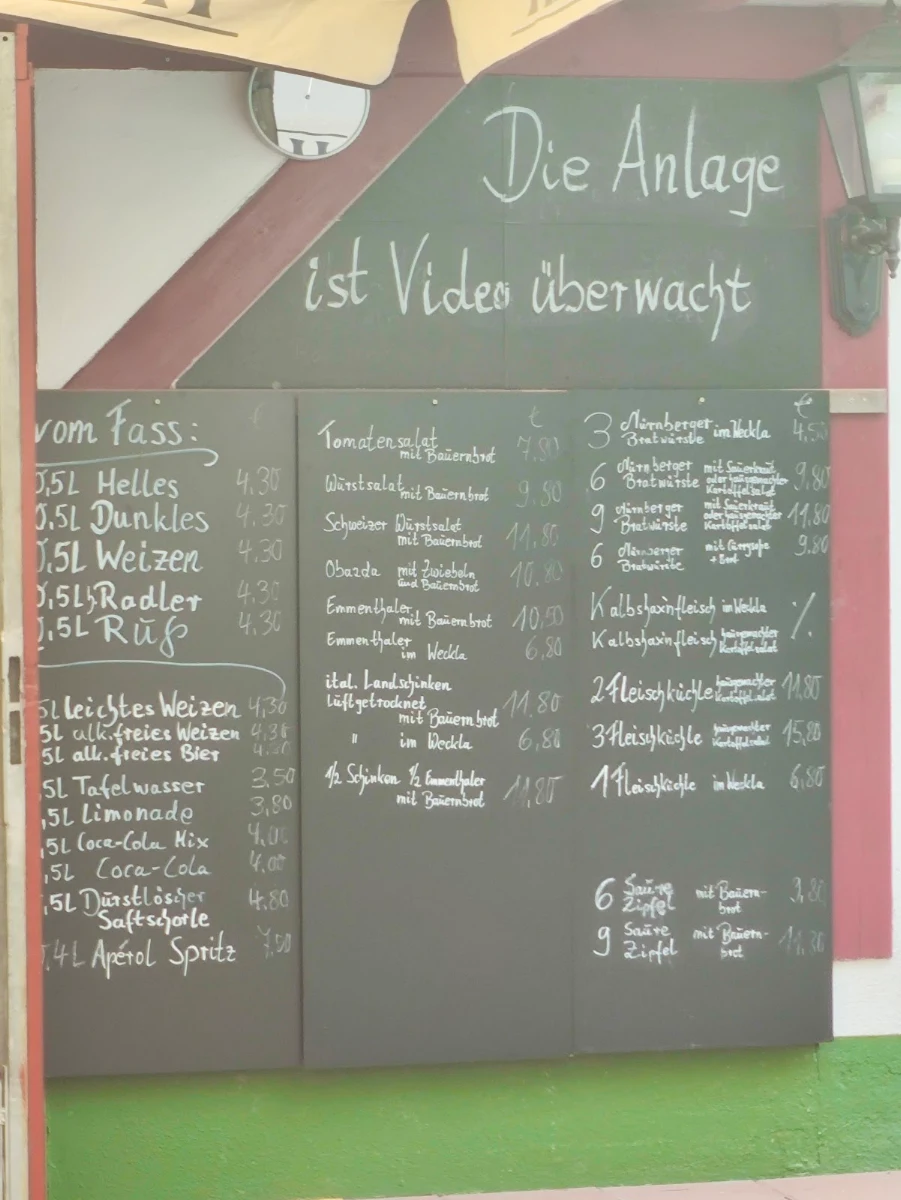 Die Anlage
ist Video überwacht
vom Fass: €
0,5L Helles 4.30
0,5L Dunkles 4.30
0,5L Weizen 4.30
0,5L Radler 4.30
0,5L Ruß 4.30
5L leichtes Weizen 4,30
5L alk.freies Weizen 4.30
5L alk.freies Bier
,5L Tafelwasser 3,50
,5L Limonade 3,80
,5L Coca-Cola Mix 4.00
,5L Coca-Cola 4.00
,5L Durstlöscher 4.80
Saftschorle
,4L Apérol Spritz 7.50
€
Tomatensalat 7.80
mit Bauernbrot
Wurstsalat mit Bauernbrot 9.80
Schweizer Wurstsalat
mit Bauernbrot 11.80
Obazda mit Zwiebeln 10.80
und Bauernbrot
Emmenthaler
mit Bauernbrot 10,50
Emmenthaler
im Weckla 6,80
ital. Landschinken
luftgetrocknet 11.80
mit Bauernbrot
" im Weckla 6,80
1/2 Schinken 1/2 Emmenthaler
mit Bauernbrot 11,80
€
3 Nürnberger im Weckla 4,50
Bratwürste
6 Nürnberger mit Sauerkraut 9,80
Bratwürste oder hausgemachter
Kartoffelsalat
9 Nürnberger mit Sauerkraut 11,80
Bratwürste oder hausgemachter
Kartoffelsalat
6 9.80
Bratwürste
Kalbshaxnfleisch im Weckla
Kalbshaxnfleisch hausgemachter
Kartoffelsalat
2 Fleischküchle hausgemachter 11,80
Kartoffelsalat
3 Fleischküchle hausgemachter 15,80
Kartoffelsalat
1 Fleischküchle im Weckla 6,80
6 Saure mit Bauern-
Zipfel brot
9 Saure mit Bauern-
Zipfel brot